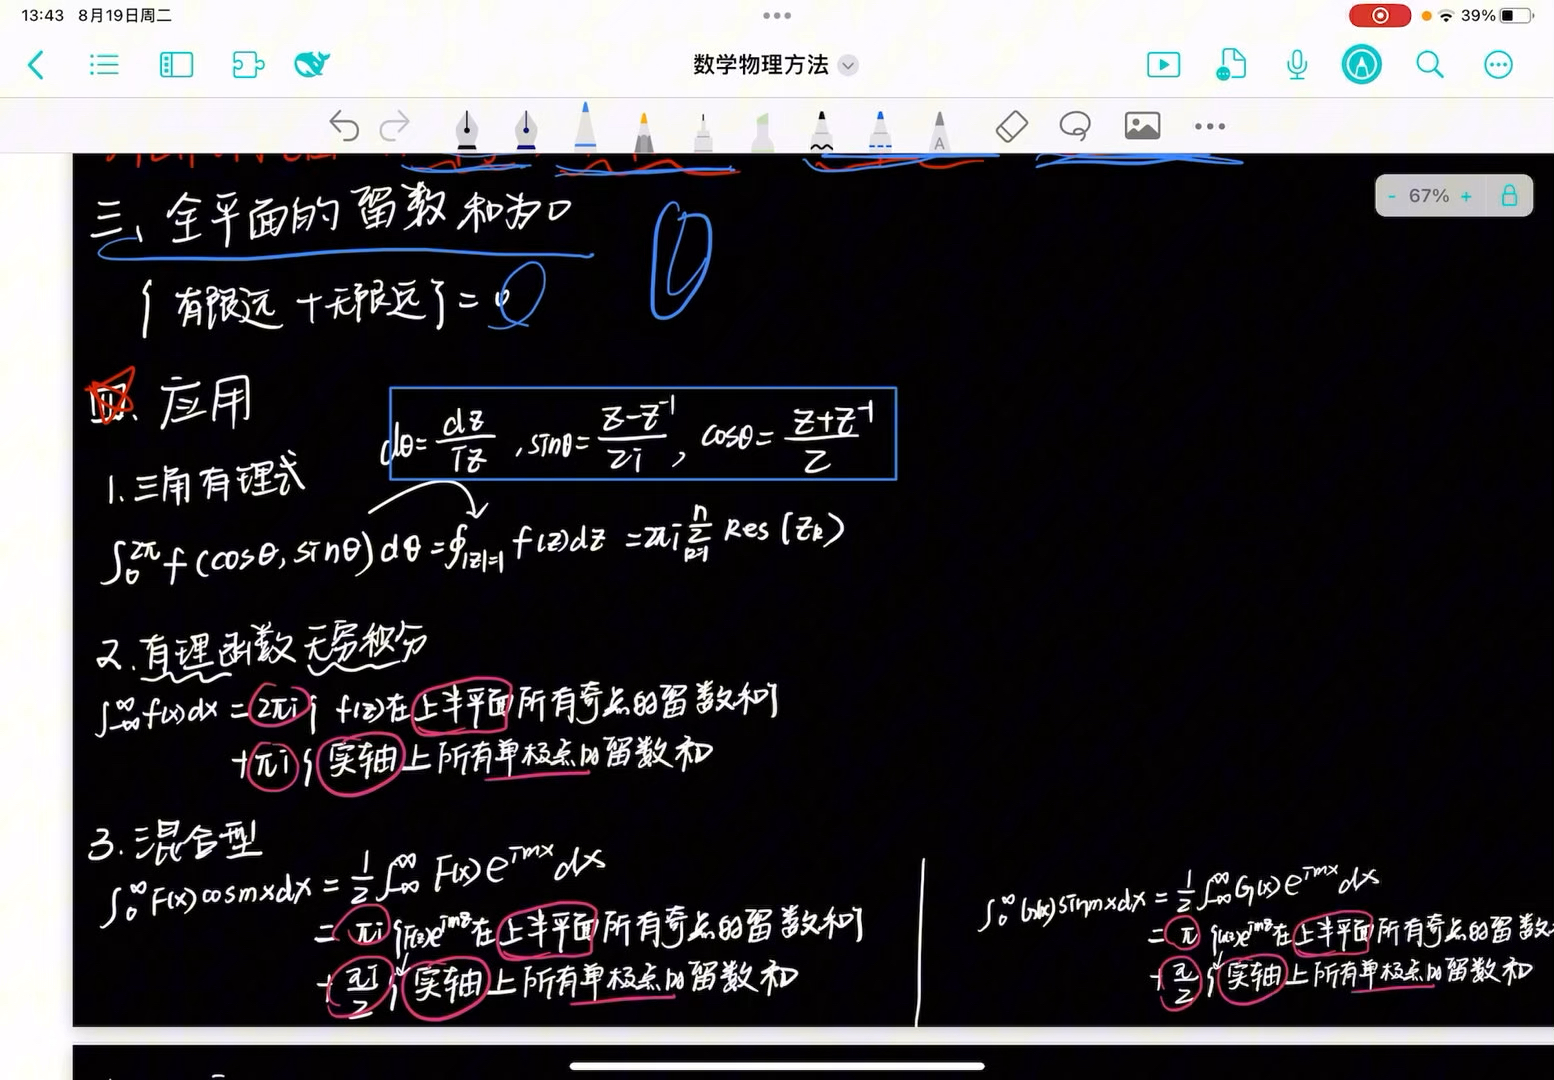 13:43 8月19日周二
39%
数学物理方法
67%
三、全平面的留数和为0
{有限远+无限远}=0
四、应用
dθ=dz/iz, sinθ=(z-z⁻¹)/2i, cosθ=(z+z⁻¹)/2
1.三角有理式
∫₀^2π f(cosθ, sinθ)dθ=∮|z|=1 f(z)dz=2πi Σ(k=1→n) Res(zₖ)
2.有理函数无穷积分
∫-∞^∞ f(x)dx=2πi{f(z)在上半平面所有奇点的留数和}
+πi{实轴上所有单极点的留数和
3.混合型
∫₀^∞ F(x)cosmxdx=1/2∫-∞^∞ F(x)e^imx dx
=πi{F(z)e^imz在上半平面所有奇点的留数和}
+πi/2{实轴上所有单极点的留数和
∫₀^∞ G(x)sinmxdx=1/2∫-∞^∞ G(x)e^imx dx
=π{G(z)e^imz在上半平面所有奇点的留数
+π/2{实轴上所有单极点的留数和